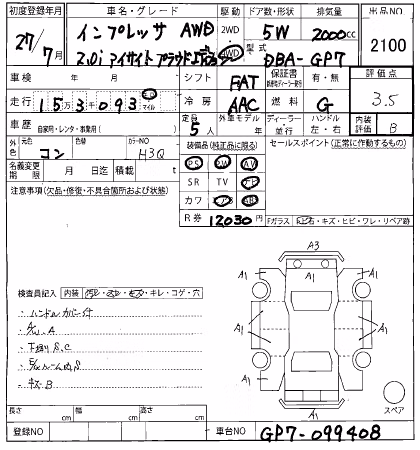 初度登録年月 車名・グレード 駆動 ドア数・形状 排気量 出品NO
27/7月 インプレッサ AWD 2WD・4WD 5W 2000cc 2100
2.0i アイサイト 型式 DBA-GP7
車検 年 月 シフト FAT 保証書 有・無 評価点 3.5
走行 15万3千093 km マイル 冷房 AAC 燃料 G
車歴 自家用・レンタ・事業用( ) 定員 5人 外車モデル 年 ディーラー 並行 ハンドル 左・右 内装評価 B
外色 元色 コン 色替 カラーNO H3Q 装備品(純正品に限る) セールスポイント(正常に動作するもの)
名義変更期限 月 日迄 積載 t PS PW AW
注意事項(欠品・修復・不具合箇所および状態) SR TV ナビ
カワ エアB
R券 12030円 Fガラス 飛石・キズ・ヒビ・ワレ・リペア跡
A3
A1 A1 A1
検査員記入 内装 汚レ・スレ・キズ・キレ・コゲ・穴
・ハンドルカバー付
A1 A1 A1 A1
・下廻りS.C
・キズ・B
A1 A1
A1
スペア
長さ cm 幅 cm 高さ cm
登録NO 車台NO GP7-099408